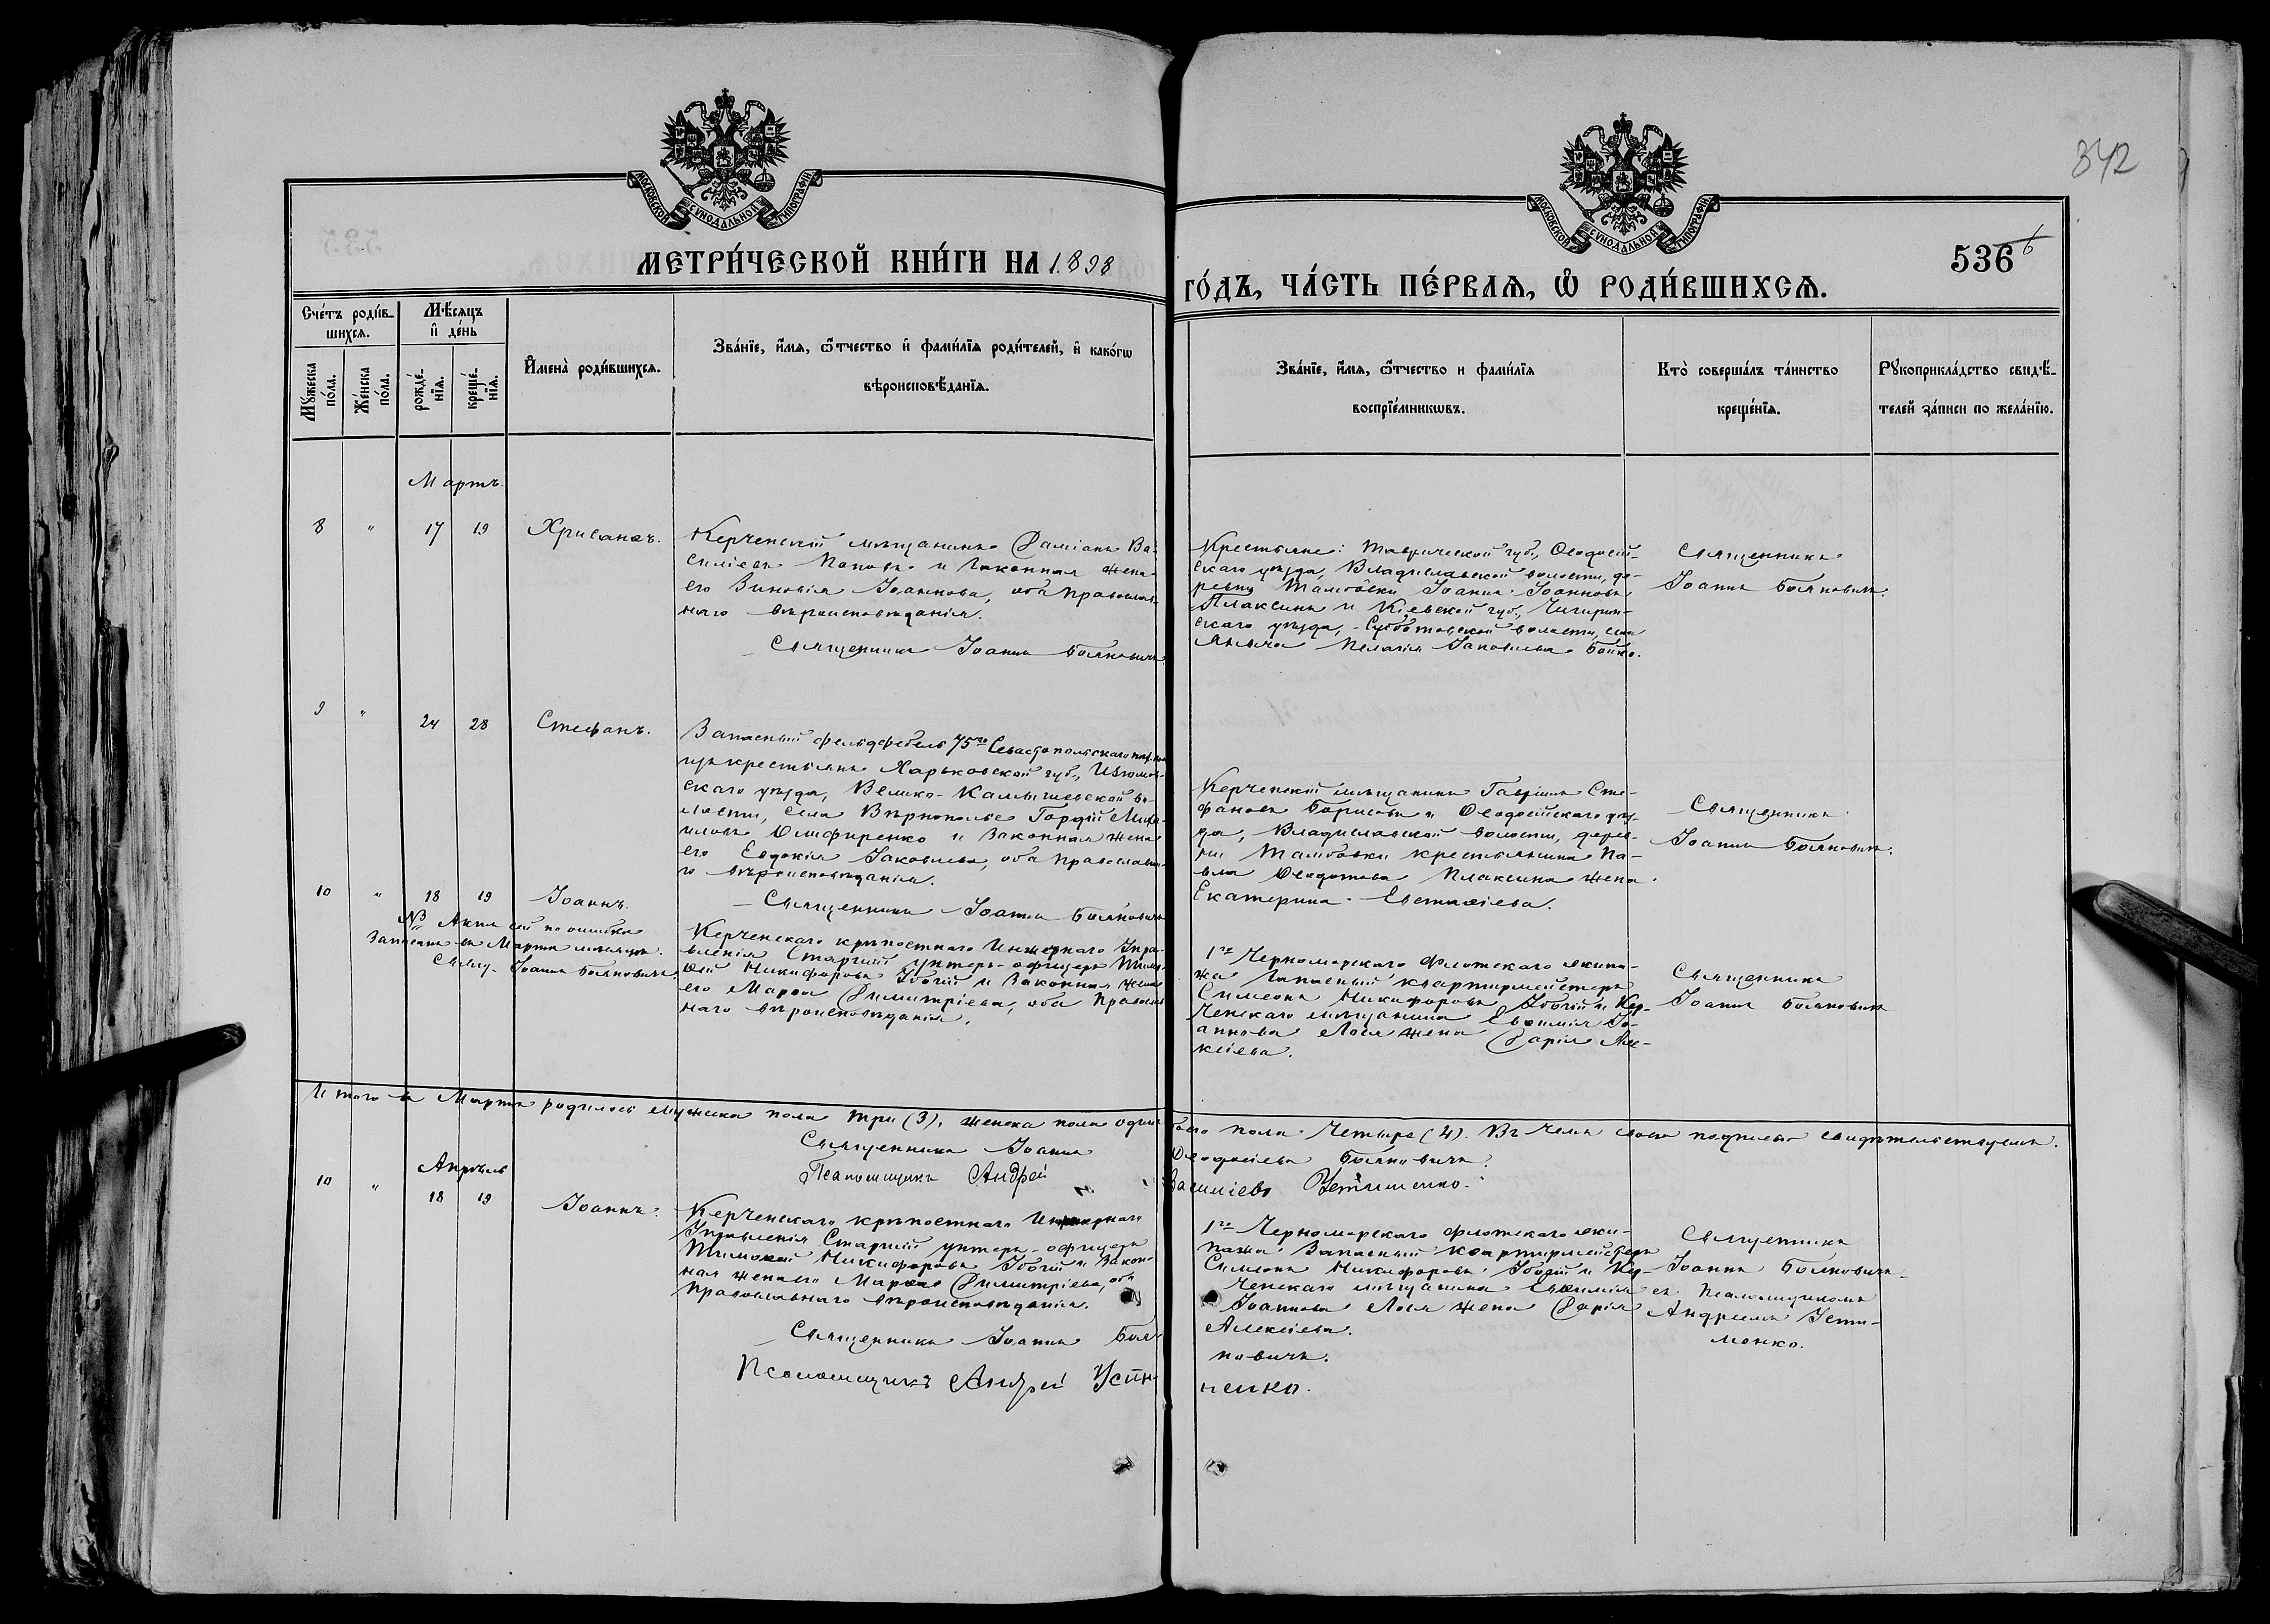 342
МОСКОВСКОЙ СѴНОДАЛЬНОЙ ТИПОГРАФІИ
МОСКОВСКОЙ СѴНОДАЛЬНОЙ ТИПОГРАФІИ
МЕТРИ́ЧЕСКОЙ КНИ́ГИ НА 1898
ГО́ДЪ, ЧА́СТЬ ПЕ́РВАѦ, Ѡ҆ РОДИ́ВШИХСѦ.
536
Сче́тъ роди́в-
шихсѧ.
Мꙋ́жеска по́ла.
Же́нска по́ла.
Мѣ́сѧцъ
и҆ де́нь
рожде́-
нїѧ.
креще́-
нїѧ.
И҆мена̀ роди́вшихсѧ.
Зва́нїе, и҆́мѧ, ѻ҆́тчество и҆ фами́лїѧ роди́телей, и҆ како́гѡ
вѣроисповѣ́данїѧ.
Зва́нїе, и҆́мѧ, ѻ҆́тчество и фами́лїѧ
воспрїе́мникѡвъ.
Кто̀ соверша́лъ та́инство
креще́нїѧ.
Рꙋкоприкла́дство свидѣ́-
телей за́писи по жела́нїю.
Мартъ.
8 " 17 19 Хрисанѳъ.
Керченскій мѣщанинъ Даміанъ Ва-
силіевъ Поповъ и законная жена
его Зиновія Іоаннова, оба православ-
наго вѣроисповѣданія.
Священникъ Іоаннъ Бояновичъ.
Крестьяне: Таврической губ., Ѳеодосій-
скаго уѣзда, Владиславской волости, де-
ревни Тамбовки Іоаннъ Іоанновъ
Плаксинъ и Кіевской губ., Чигирин-
скаго уѣзда, Субботовской волости, села
Пелагія Іаковлева Бойко.
Священникъ
Іоаннъ Бояновичъ.
9 " 24 28 Стефанъ.
Запасный фельдфебель 75го Севастопольскаго
изъ крестьянъ Харьковской губ., Изюмов-
скаго уѣзда, Велико-Камышевской во-
лости, села Вѣрнополье Гордій Миха-
иловъ и законная жена
его Евдокія Іаковлева, оба православна-
го вѣроисповѣданія.
Священникъ Іоаннъ Бояновичъ
Керченскій мѣщанинъ Гавріилъ Сте-
фановъ Борисовъ и Ѳеодосійскаго уѣз-
да, Владиславской волости, дерев-
ни Тамбовки крестьянина Па-
вла Ѳеодотова Плаксина жена
Екатерина Евстаѳіева.
Священникъ
Іоаннъ Бояновичъ.
10 " 18 19 Іоаннъ.
№ Актъ сей по ошибкѣ
записанъ въ Мартѣ мѣсяцѣ.
Свящ. Іоаннъ Бояновичъ.
Керченскаго крѣпостного Инженернаго Упра-
вленія Старшій унтеръ-офицеръ Тимо-
ѳей Никифоровъ Убогій и законная жена
его Марѳа Димитріева, оба православ-
наго вѣроисповѣданія.
1го Черноморскаго флотскаго экипа-
жа запасный квартирмейстеръ
Симеонъ Никифоровъ Убогій и Кер-
ченскаго мѣщанина Евѳимія Іо-
аннова Лоя жена Дарія Але-
ксіева.
Священникъ
Іоаннъ Бояновичъ
Итого въ Мартѣ родилось мужска пола три (3), женска пола одинъ
обоего пола четыре (4). Въ чемъ своею подписью свидѣтельствуемъ.
Священникъ Іоаннъ Ѳеодосіевъ Бояновичъ.
Псаломщикъ Андрей Василіевъ Устименко.
Апрѣль
10 " 18 19 Іоаннъ.
Керченскаго крѣпостнаго Инженернаго
Управленія Старшій унтеръ-офицеръ
Тимоѳей Никифоровъ Убогій и закон-
ная жена его Марѳа Димитріева, оба
православнаго вѣроисповѣданія.
1го Черноморскаго флотскаго эки-
пажа запасный квартирмейстеръ
Симеонъ Никифоровъ Убогій и Кер-
ченскаго мѣщанина Евѳимія
Іоаннова Лоя жена Дарія
Алексіева.
Священникъ
Іоаннъ Бояновичъ
съ Псаломщикомъ
Андреемъ Усти-
менко.
Священникъ Іоаннъ Боя-
новичъ.
Псаломщикъ Андрей Усти-
менко.